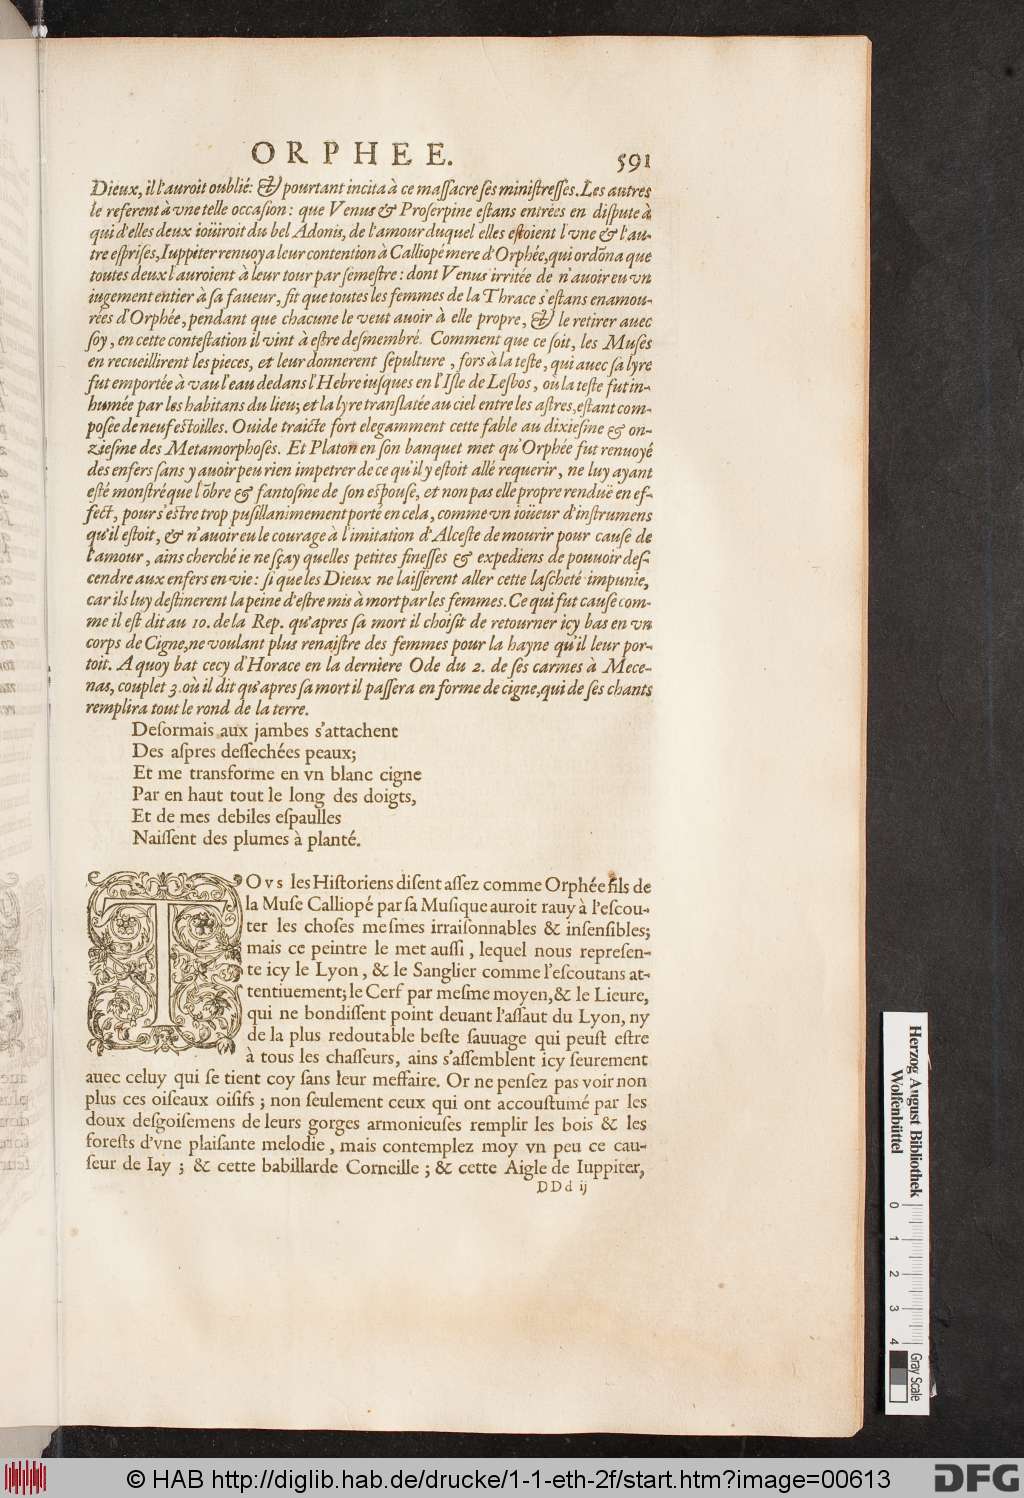 ORPHEE. 591
Dieux, il l'auroit oublié: & pourtant incita à ce maſſacre ſes miniſtreſſes. Les autres
le referent à vne telle occaſion: que Venus & Proſerpine eſtans entrées en diſpute à
qui d'elles deux ioüiroit du bel Adonis, de l'amour duquel elles eſtoient l'vne & l'au-
tre eſpriſes, Iuppiter renuoya leur contention à Calliopé mere d'Orphée, qui ordōna que
toutes deux l'auroient à leur tour par ſemeſtre: dont Venus irritée de n'auoir eu vn
iugement entier à ſa faueur, fit que toutes les femmes de la Thrace s'eſtans enamou-
rées d'Orphée, pendant que chacune le veut auoir à elle propre, & le retirer auec
ſoy, en cette conteſtation il vint à eſtre deſmembré. Comment que ce ſoit, les Muſes
en recueillirent les pieces, et leur donnerent ſepulture, fors à la teſte, qui auec ſa lyre
fut emportée à vau l'eau dedans l'Hebre iuſques en l'Iſle de Lesbos, où la teſte fut in-
humée par les habitans du lieu; et la lyre tranſlatée au ciel entre les aſtres, eſtant com-
poſée de neuf eſtoilles. Ouide traicte fort elegamment cette fable au dixieſme & on-
zieſme des Metamorphoſes. Et Platon en ſon banquet met qu'Orphée fut renuoyé
des enfers ſans y auoir peu rien impetrer de ce qu'il y eſtoit allé requerir, ne luy ayant
eſté monſtré que l'ōbre & fantoſme de ſon eſpouſe, et non pas elle propre renduë en ef-
fect, pour s'eſtre trop puſillanimement porté en cela, comme vn ioüeur d'inſtrumens
qu'il eſtoit, & n'auoir eu le courage à l'imitation d'Alceſte de mourir pour cauſe de
l'amour, ains cherché ie ne ſçay quelles petites fineſſes & expediens de pouuoir deſ-
cendre aux enfers en vie: ſi que les Dieux ne laiſſerent aller cette laſcheté impunie,
car ils luy deſtinerent la peine d'eſtre mis à mort par les femmes. Ce qui fut cauſe com-
me il eſt dit au 10. de la Rep. qu'apres ſa mort il choiſit de retourner icy bas en vn
corps de Cigne, ne voulant plus renaiſtre des femmes pour la hayne qu'il leur por-
toit. A quoy bat cecy d'Horace en la derniere Ode du 2. de ſes carmes à Mece-
nas, couplet 3. où il dit qu'apres ſa mort il paſſera en forme de cigne, qui de ſes chants
remplira tout le rond de la terre.
Deſormais aux jambes s'attachent
Des aſpres deſſechées peaux;
Et me transforme en vn blanc cigne
Par en haut tout le long des doigts,
Et de mes debiles eſpaulles
Naiſſent des plumes à planté.
TOVS les Hiſtoriens diſent aſſez comme Orphée fils de
la Muſe Calliopé par ſa Muſique auroit rauy à l'eſcou-
ter les choſes meſmes irraiſonnables & inſenſibles;
mais ce peintre le met auſſi, lequel nous repreſen-
te icy le Lyon, & le Sanglier comme l'eſcoutans at-
tentiuement; le Cerf par meſme moyen, & le Lieure,
qui ne bondiſſent point deuant l'aſſaut du Lyon, ny
de la plus redoutable beſte ſauuage qui peuſt eſtre
à tous les chaſſeurs, ains s'aſſemblent icy ſeurement
auec celuy qui ſe tient coy ſans leur meffaire. Or ne penſez pas voir non
plus ces oiſeaux oiſifs; non ſeulement ceux qui ont accouſtumé par les
doux deſgoiſemens de leurs gorges armonieuſes remplir les bois & les
foreſts d'vne plaiſante melodie, mais contemplez moy vn peu ce cau-
ſeur de Iay; & cette babillarde Corneille; & cette Aigle de Iuppiter,
DDd ij
Herzog August Bibliothek
Wolfenbüttel
0 1 2 3 4
Gray Scale
© HAB http://diglib.hab.de/drucke/1-1-eth-2f/start.htm?image=00613
DFG